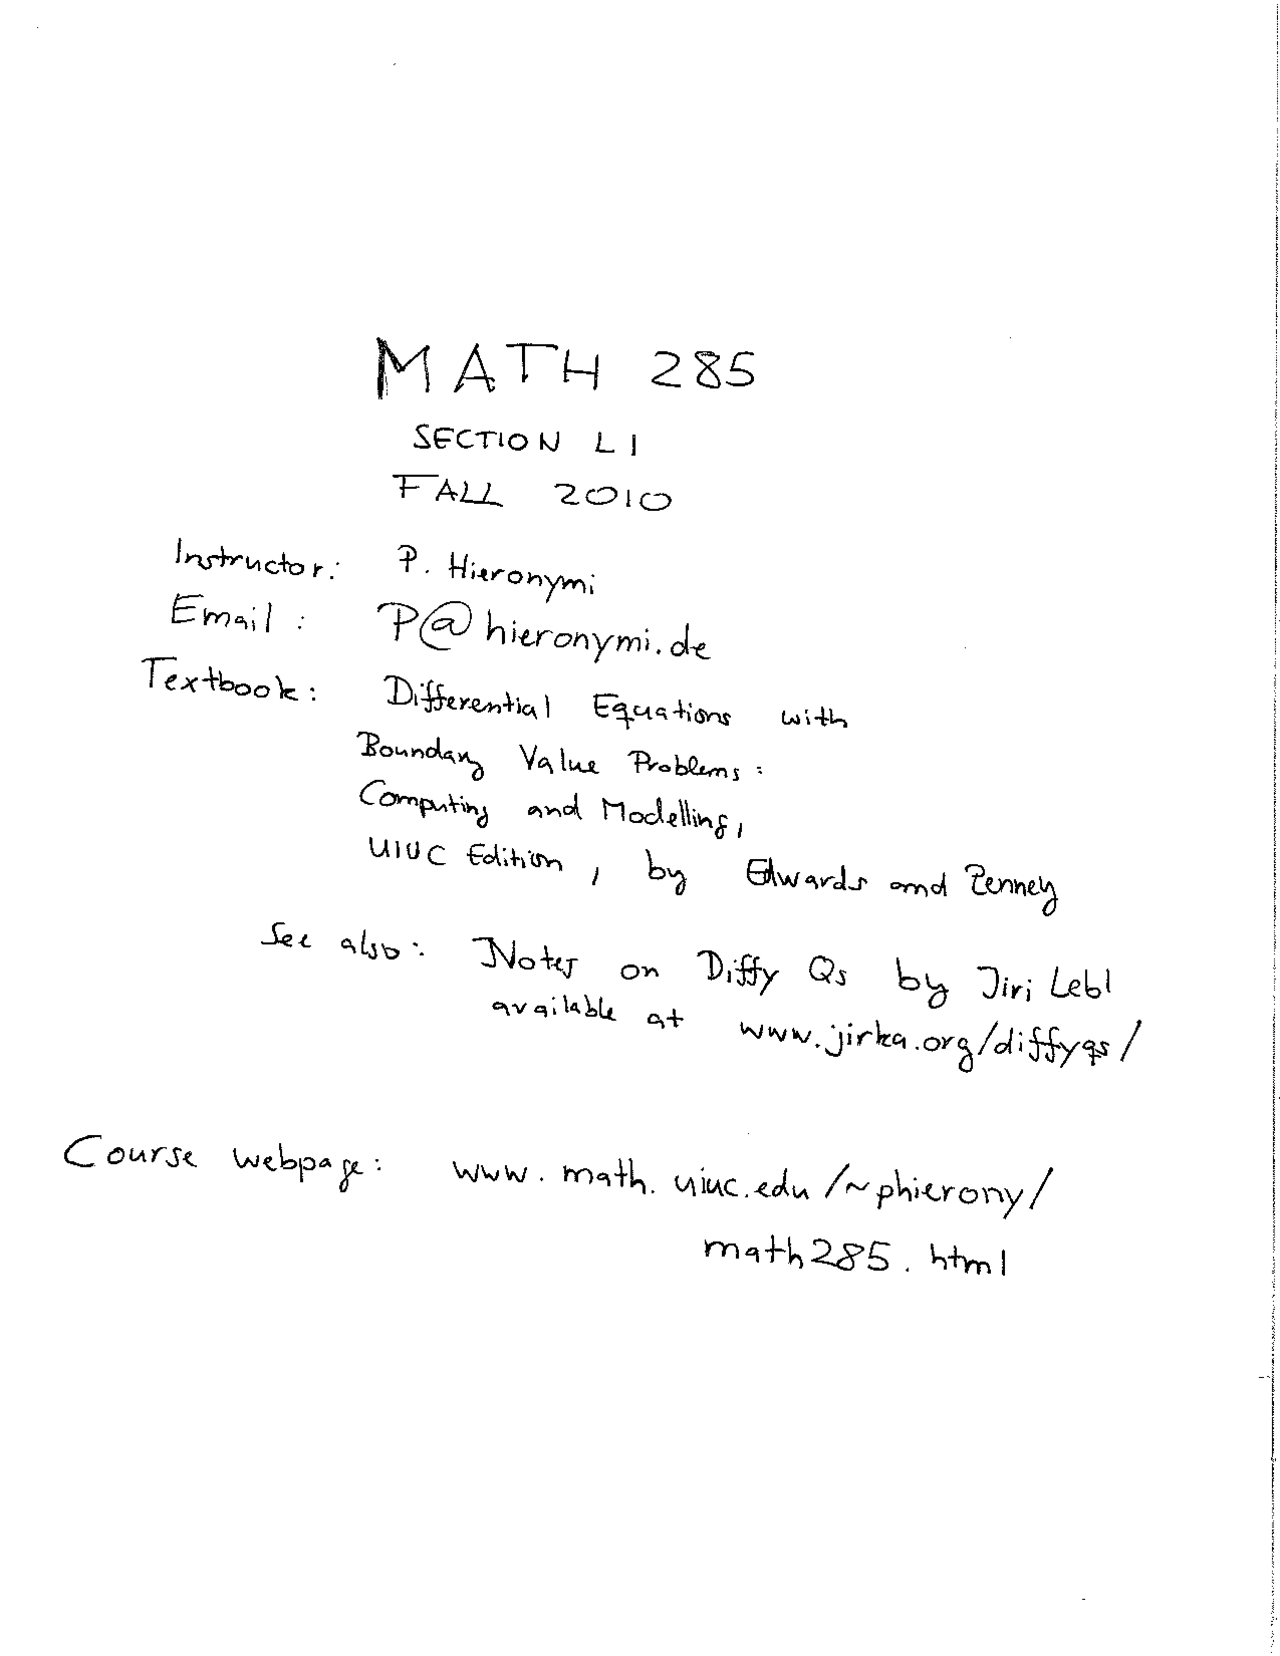 MATH 285
SECTION L1
FALL 2010
Instructor: P. Hieronymi
Email: P@hieronymi.de
Textbook: Differential Equations with
Boundary Value Problems:
Computing and Modelling,
UIUC Edition, by Edwards and Penney
See also: Notes on Diffy Qs by Jiri Lebl
available at www.jirka.org/diffyqs/
Course webpage: www.math.uiuc.edu/~phierony/
math285.html